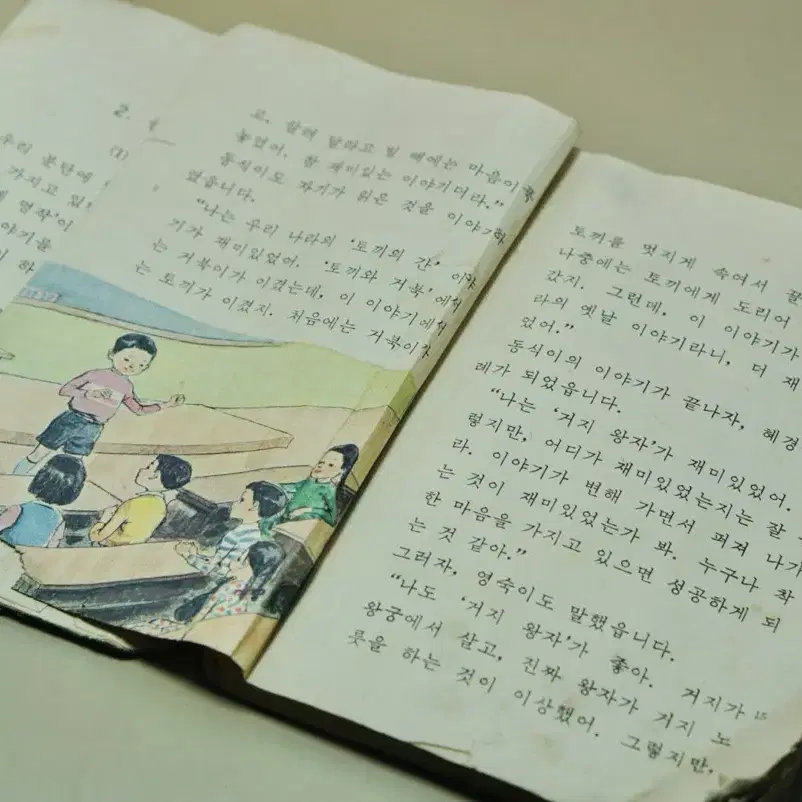 우리 분단에
가지고 있
명작'이
야기를
하
2.
(1)
고, 살려 달라고 빌 때에는 마음이
놓였어. 참 재미있는 이야기더라."
동식이도 자기가 읽은 것을 이야기하
였읍니다.
"나는 우리 나라의 '토끼의 간' 이야
기가 재미있었어. '토끼와 거북'에서
는 거북이가 이겼는데, 이 이야기에서
는 토끼가 이겼지. 처음에는 거북이가
토끼를 멋지게 속여서 끌
나중에는 토끼에게 도리어
갔지. 그런데, 이 이야기가
라의 옛날 이야기라니, 더 재
었어."
동식이의 이야기가 끝나자, 혜경
레가 되었읍니다.
"나는 '거지 왕자'가 재미있었어.
렇지만, 어디가 재미있었는지는 잘
라. 이야기가 변해 가면서 퍼져 나가
는 것이 재미있었는가 봐. 누구나 착
한 마음을 가지고 있으면 성공하게 되
는 것 같아."
그러자, 영숙이도 말했읍니다.
"나도 '거지 왕자'가 좋아. 거지가
왕궁에서 살고, 진짜 왕자가 거지 노
릇을 하는 것이 이상했어. 그렇지만,
15